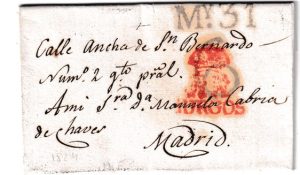 Mº 31
Calle Ancha de Sn Bernardo
Numº 2 qto pral.
BURGOS
Ami Sra Da Manuela Cabria
de chaves
Madrid.
1824